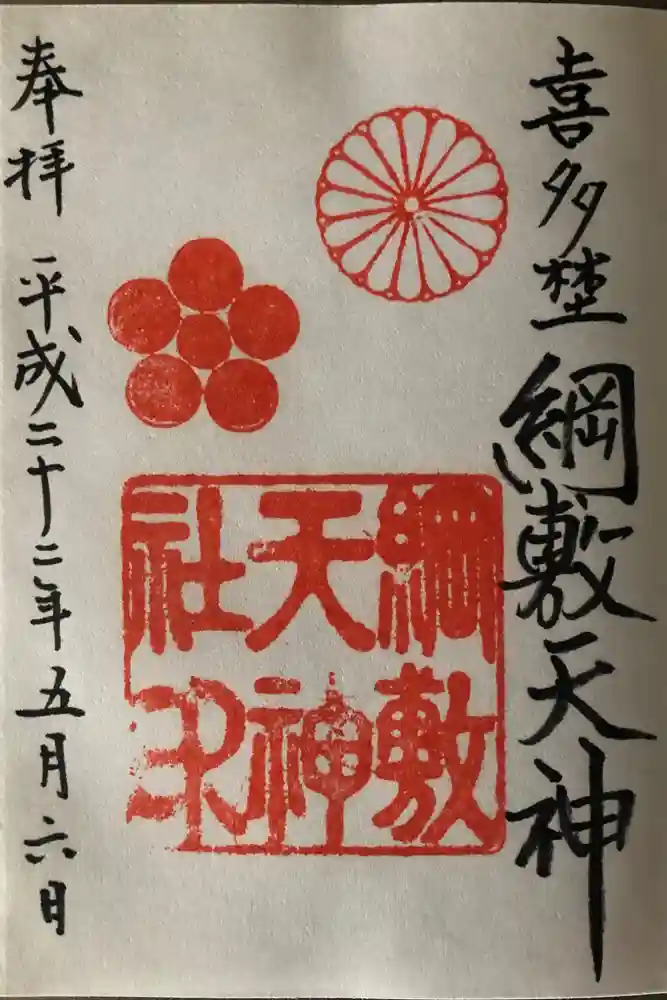 喜多埜
綱敷天神
綱敷
天神
社印
奉拝 平成二十二年五月六日